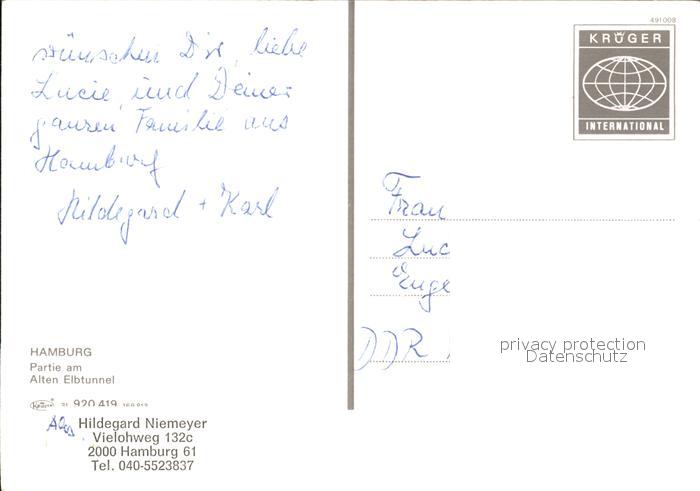 wünschen Dir, liebe
Lucie, und Deiner
ganzen Familie aus
Hamburg
Hildegard + Karl
HAMBURG
Partie am
Alten Elbtunnel
Krüger 920.419
Abs Hildegard Niemeyer
Vielohweg 132c
2000 Hamburg 61
Tel. 040-5523837
491008
KRÜGER
INTERNATIONAL
Frau
Luc
Euge
DDR
privacy protection
Datenschutz